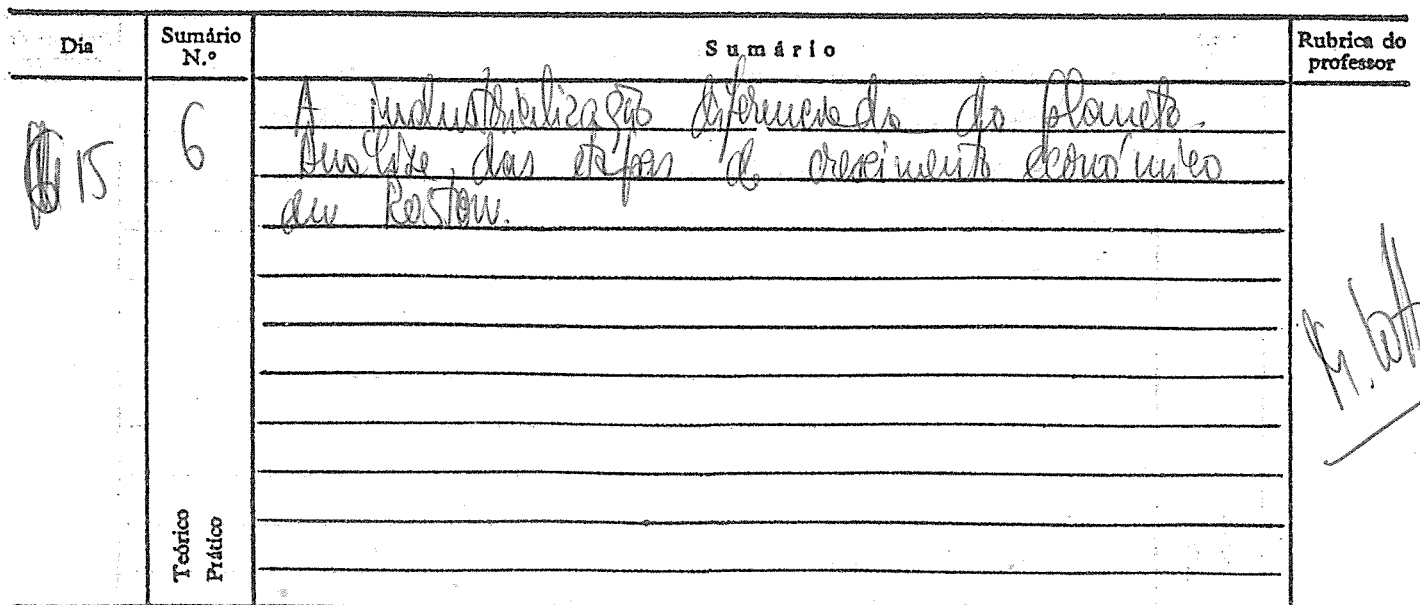 Dia
Sumário N.º
Sumário
Rubrica do professor
15
6
A industrialização diferenciada do planeta.
Análise das etapas de crescimento económico
em Rostow.
Teórico
Prático